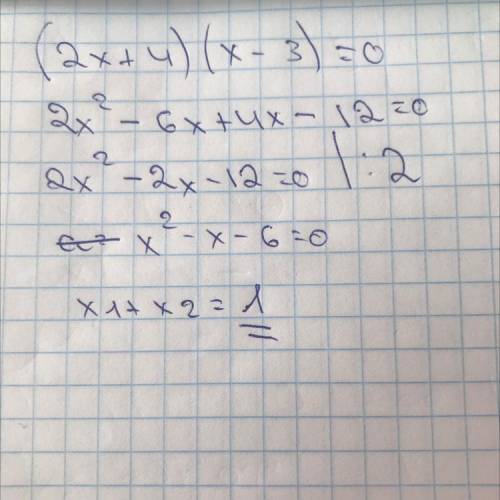 (2x+4)(x-3)=0
2x² - 6x+4x- 12=0
2x² -2x-12=0 |:2
x² -x-6=0
x1+x2=1